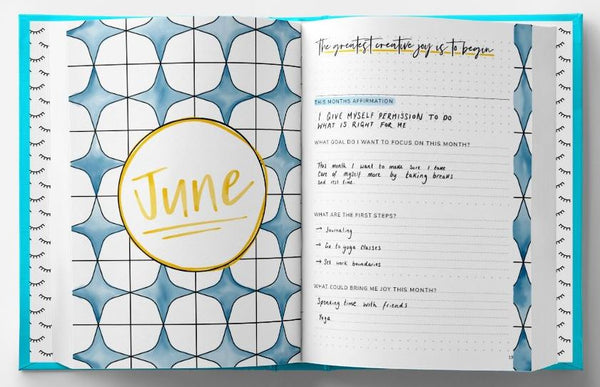 June
The greatest creative joy is to begin
THIS MONTHS AFFIRMATION
I GIVE MYSELF PERMISSION TO DO
WHAT IS RIGHT FOR ME
WHAT GOAL DO I WANT TO FOCUS ON THIS MONTH?
This month I want to make sure I take
care of myself more by taking breaks
and rest time.
WHAT ARE THE FIRST STEPS?
→ Journaling
→ Go to yoga classes
→ Set work boundaries
WHAT COULD BRING ME JOY THIS MONTH?
Spending time with friends
Yoga